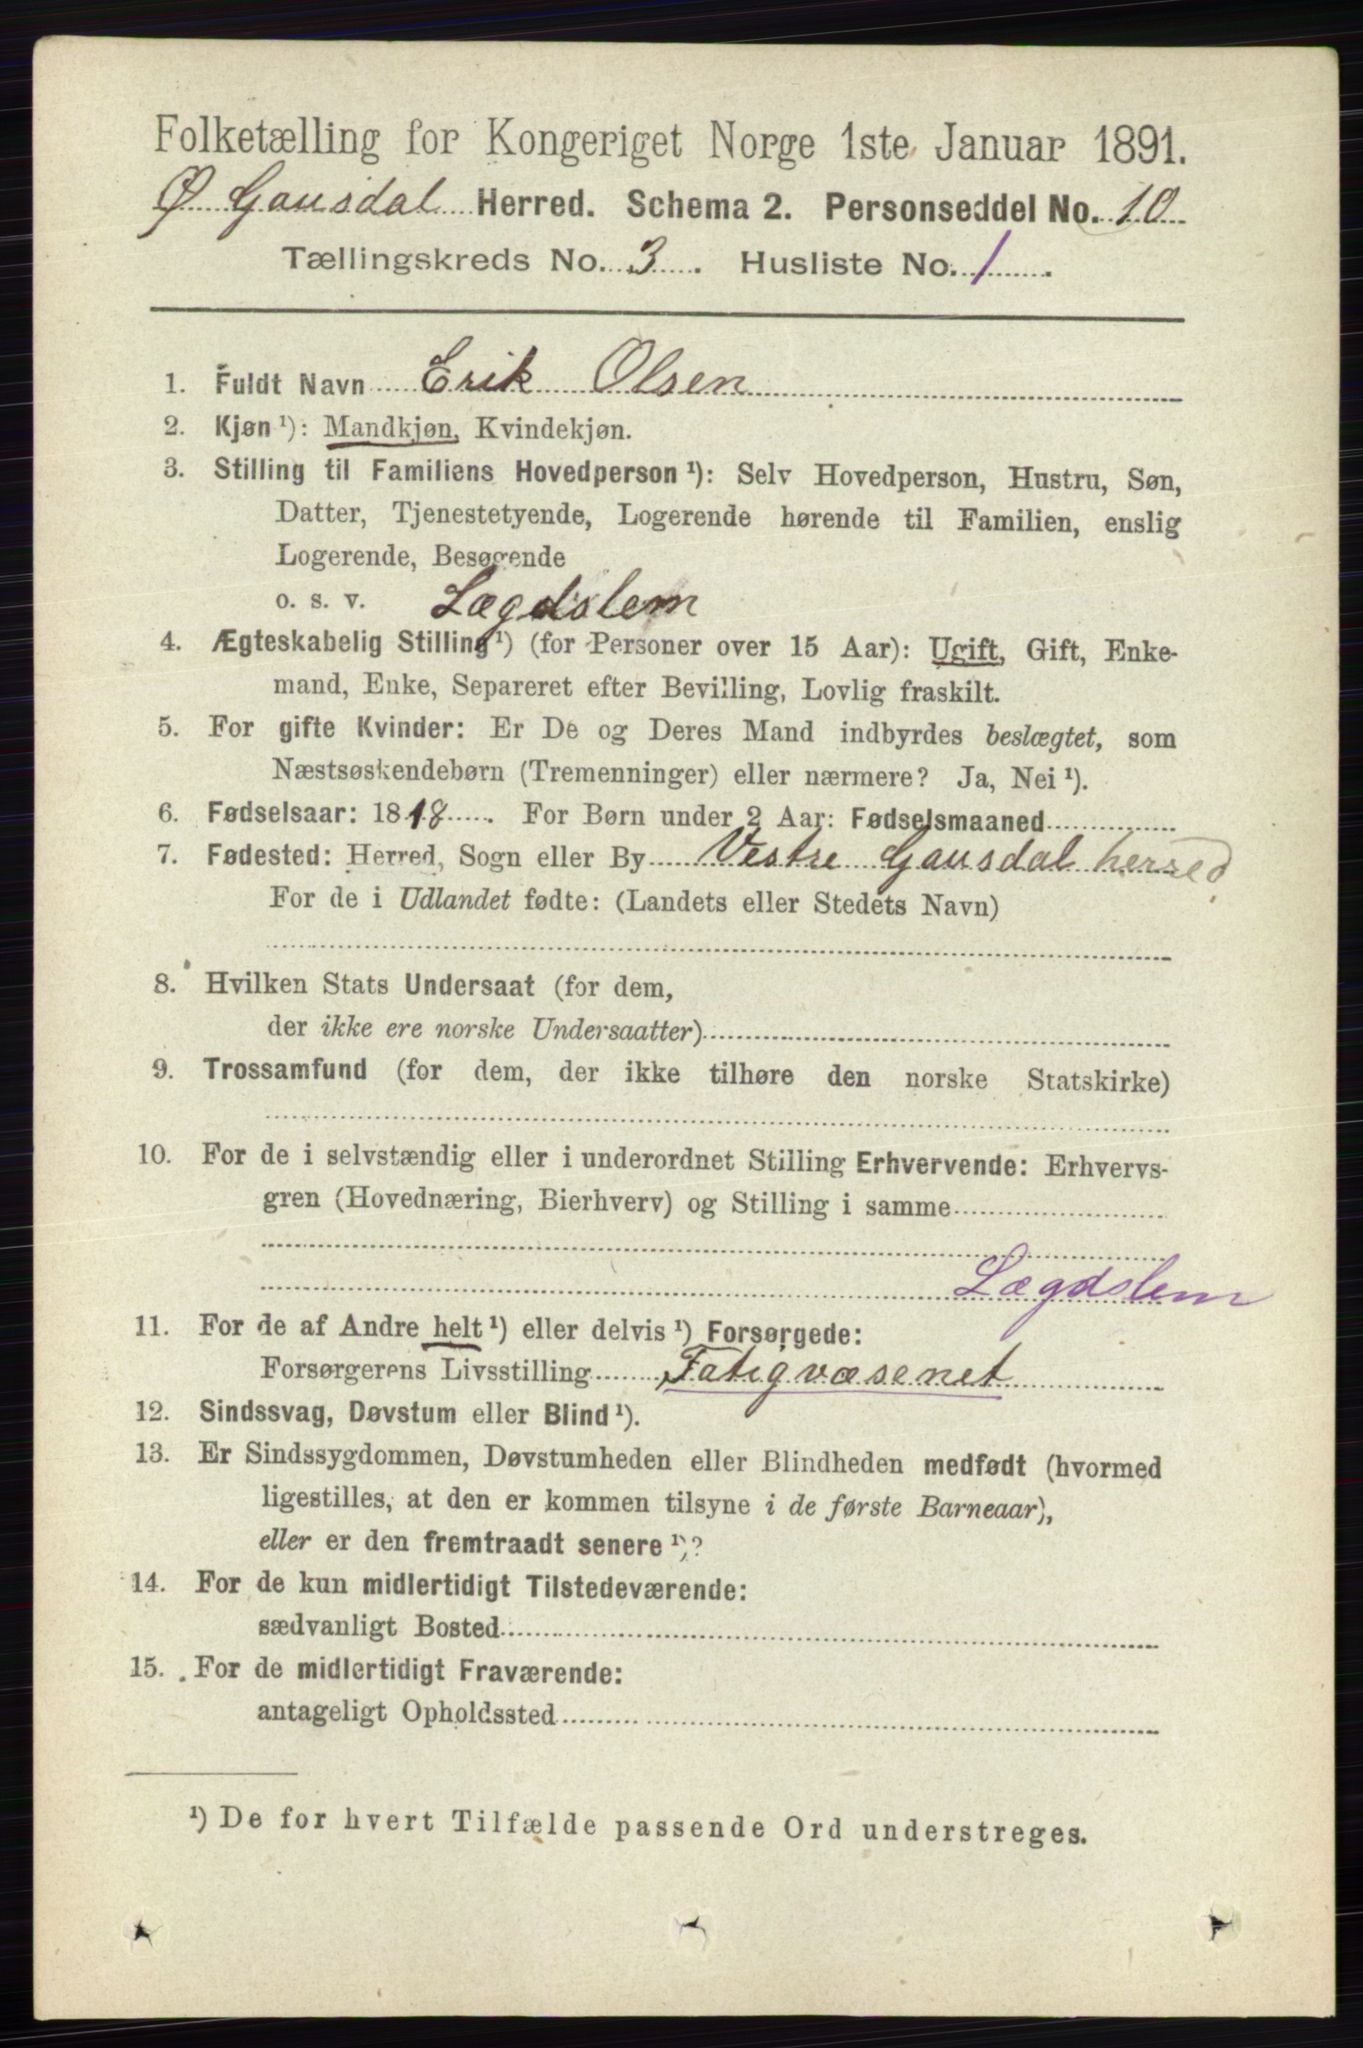 Folketælling for Kongeriget Norge 1ste Januar 1891.
Ø Gausdal Herred. Schema 2. Personseddel No. 10
Tællingskreds No. 3. Husliste No. 1.
1. Fuldt Navn Erik Olsen
2. Kjøn ¹): Mandkjøn, Kvindekjøn.
3. Stilling til Familiens Hovedperson ¹): Selv Hovedperson, Hustru, Søn,
Datter, Tjenestetyende, Logerende hørende til Familien, enslig
Logerende, Besøgende
o. s. v. Lægdslem
4. Ægteskabelig Stilling ¹) (for Personer over 15 Aar): Ugift, Gift, Enke-
mand, Enke, Separeret efter Bevilling, Lovlig fraskilt.
5. For gifte Kvinder: Er De og Deres Mand indbyrdes beslægtet, som
Næstsøskendebørn (Tremenninger) eller nærmere? Ja, Nei ¹).
6. Fødselsaar: 1818. For Børn under 2 Aar: Fødselsmaaned
7. Fødested: Herred, Sogn eller By Vestre Gausdal herred
For de i Udlandet fødte: (Landets eller Stedets Navn)
8. Hvilken Stats Undersaat (for dem,
der ikke ere norske Undersaatter)
9. Trossamfund (for dem, der ikke tilhøre den norske Statskirke)
10. For de i selvstændig eller i underordnet Stilling Erhvervende: Erhvervs-
gren (Hovednæring, Bierhverv) og Stilling i samme
Lægdslem
11. For de af Andre helt ¹) eller delvis ¹) Forsørgede:
Forsørgerens Livsstilling Fatigvæsenet
12. Sindssvag, Døvstum eller Blind ¹).
13. Er Sindssygdommen, Døvstumheden eller Blindheden medfødt (hvormed
ligestilles, at den er kommen tilsyne i de første Barneaar),
eller er den fremtraadt senere ¹)?
14. For de kun midlertidigt Tilstedeværende:
sædvanligt Bosted
15. For de midlertidigt Fraværende:
antageligt Opholdssted
¹) De for hvert Tilfælde passende Ord understreges.